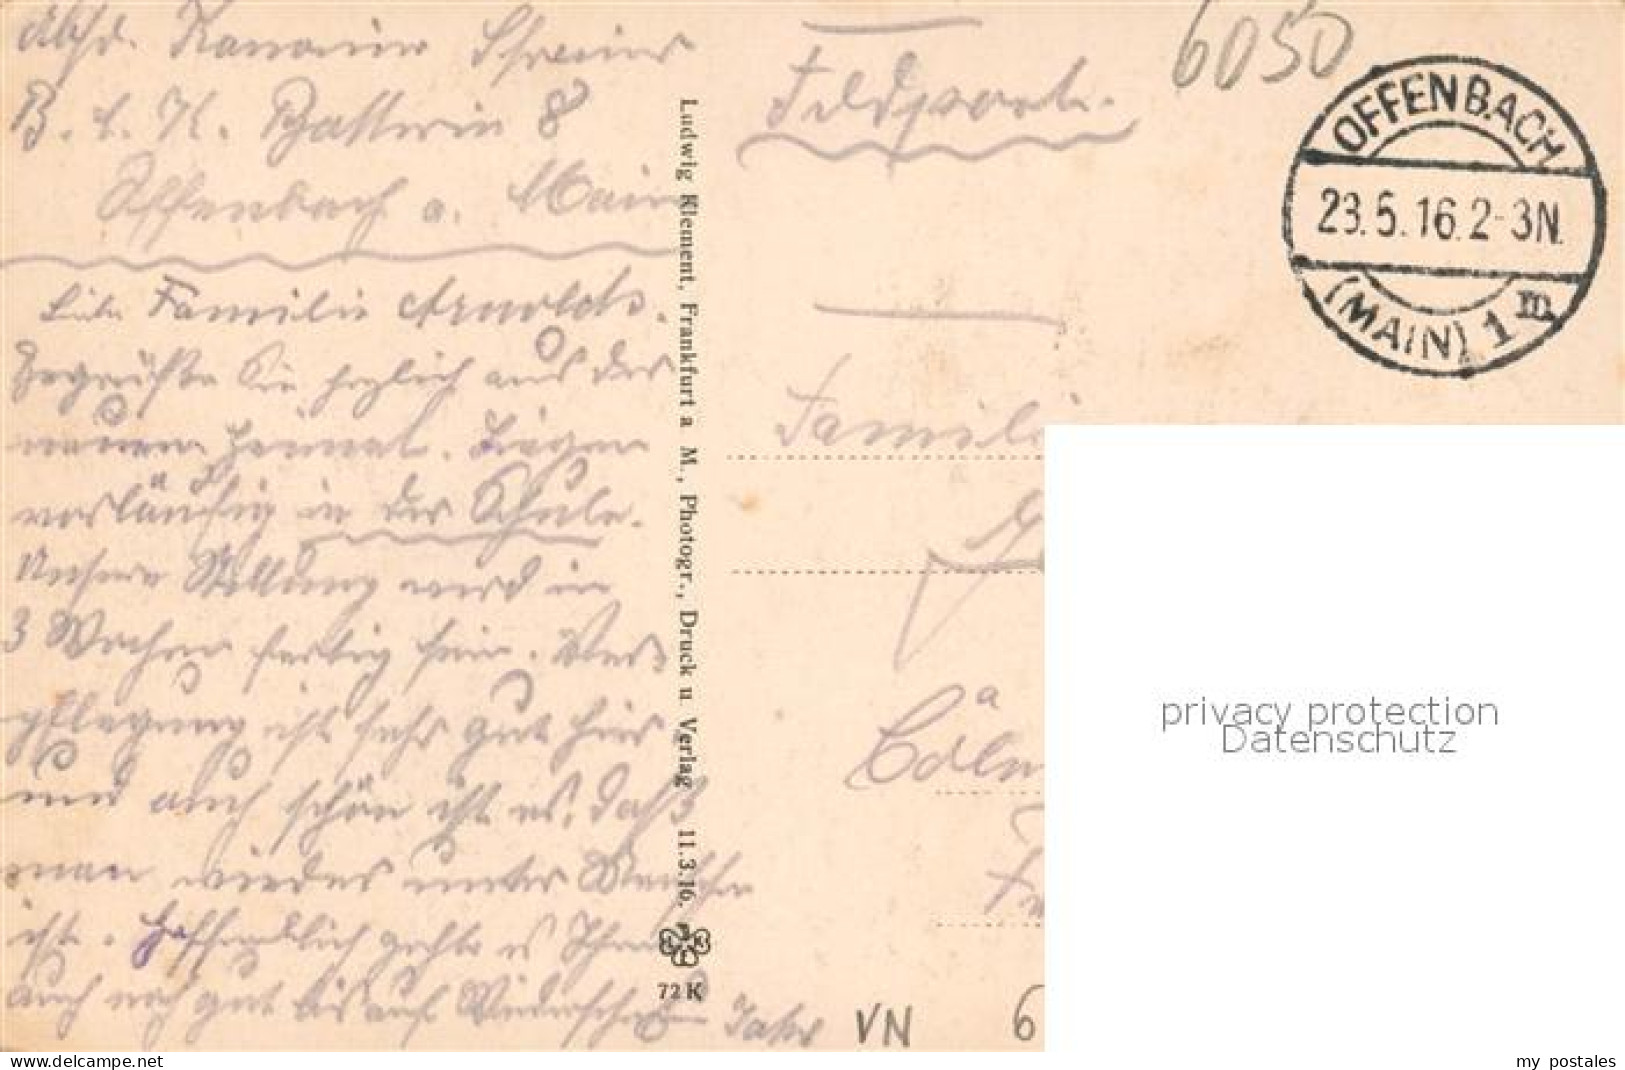 Absd. Kanonier Schreiner
B. L. K. Batterie 8
Offenbach a. Main
Liebe Familie Arnolds.
Begrüße Sie herzlich aus der
neuen Heimat. Liegen
vorläufig in der Schule.
Unsere Stellung wird in
3 Wochen fertig sein. Ver-
pflegung ist sehr gut hier
und auch schön ist es, daß
man wieder unter Menschen
ist. Hoffentlich geht es Ihnen
auch noch gut bis auf Wiedersehen
Ludwig Klement, Frankfurt a. M., Photogr., Druck u. Verlag 11.3.16.
72 K
Feldpost.
6050
OFFENBACH
23.5.16.2-3N.
(MAIN) 1 m.
Famili
Cöln
a
VN
6
privacy protection
Datenschutz
www.delcampe.net
my_postales